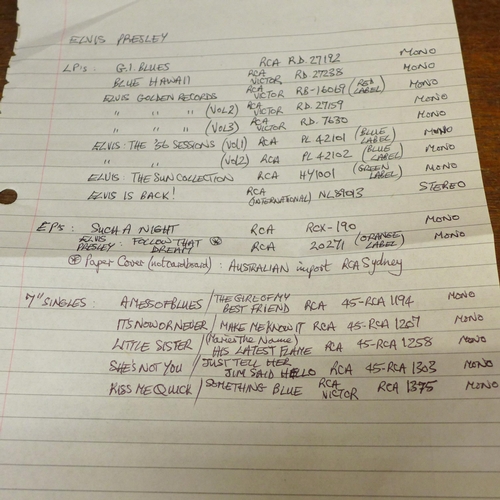 ELVIS PRESLEY
LP's: G.I. BLUES RCA RD. 27192 MONO
BLUE HAWAII RCA VICTOR RD 27238 MONO
ELVIS GOLDEN RECORDS RCA VICTOR RB-16069 (RED LABEL) MONO
" " " (VOL2) RCA VICTOR RD. 27159 MONO
" " " (VOL3) RCA VICTOR RD. 7630 MONO
ELVIS: THE '56 SESSIONS (VOL1) RCA PL 42101 (BLUE LABEL) MONO
" " " (VOL2) RCA PL 42102 (BLUE LABEL) MONO
ELVIS: THE SUN COLLECTION RCA HY1001 (GREEN LABEL) MONO
ELVIS IS BACK! RCA (INTERNATIONAL) NL89013 STEREO
EP's: SUCH A NIGHT RCA RCX-190 MONO
ELVIS PRESLEY: FOLLOW THAT DREAM * RCA 20271 (ORANGE LABEL) MONO
* Paper Cover (not cardboard): AUSTRALIAN import RCA Sydney
7" SINGLES: A MESS OF BLUES / THE GIRL OF MY BEST FRIEND RCA 45-RCA 1194 MONO
IT'S NOW OR NEVER / MAKE ME KNOW IT RCA 45-RCA 1207 MONO
LITTLE SISTER / (Maries The Name) HIS LATEST FLAME RCA 45-RCA 1258 MONO
SHE'S NOT YOU / JUST TELL HER JIM SAID HELLO RCA 45-RCA 1303 MONO
KISS ME QUICK / SOMETHING BLUE RCA VICTOR RCA 1375 MONO